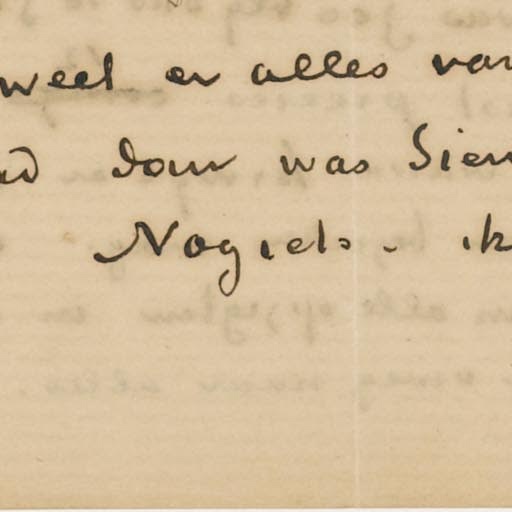 weet er alles van
daar was Sien
Nog iets. – ik